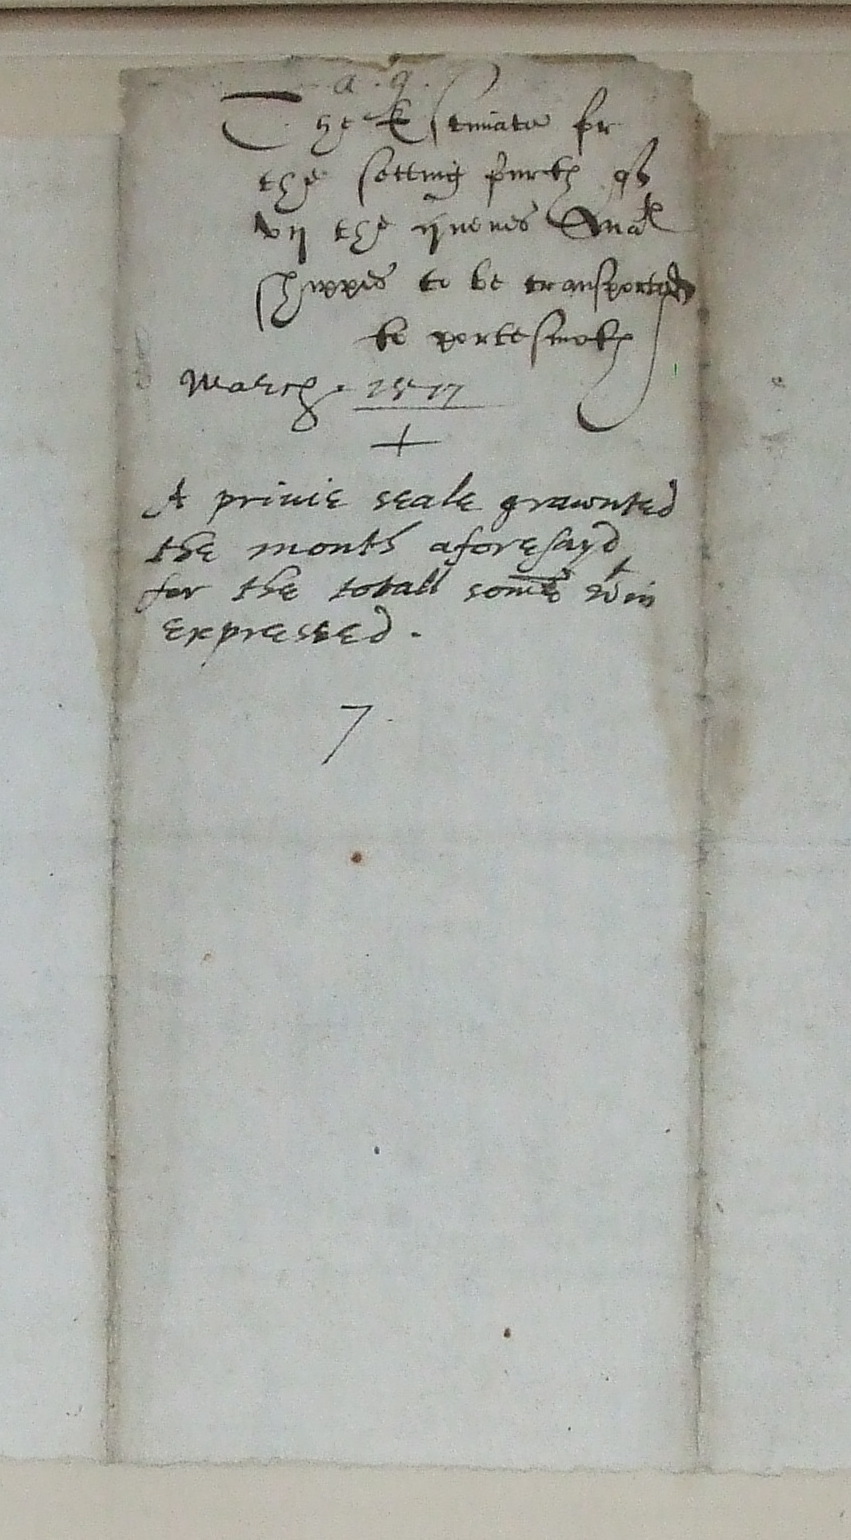 a . 9 .
The Estimate for
the setting furth of
vij the quenes Ma
shippes to be transported
to portesmoth
March . 1577
A privie seale grawnted
the month aforesayd
for the totall some wtin
expressed .
7